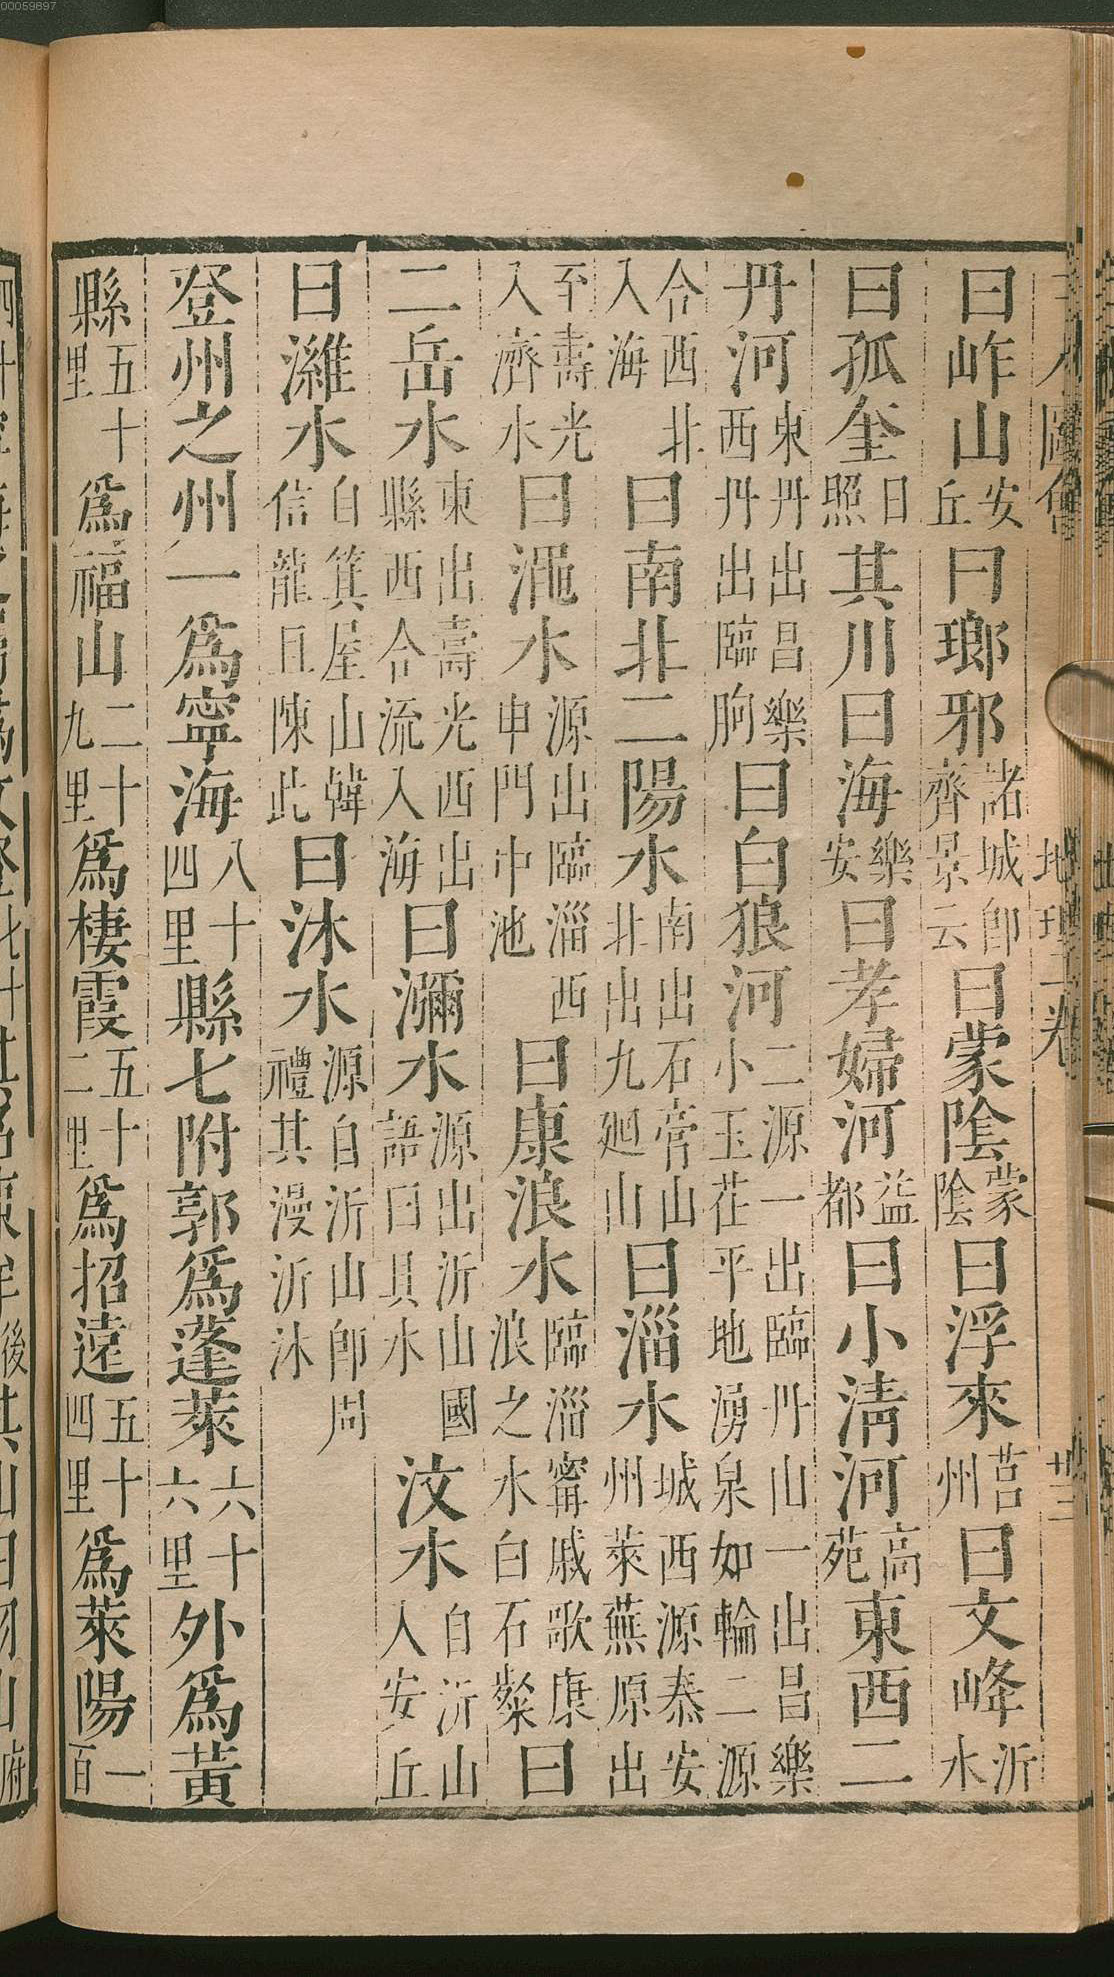 圖會 地理 卷 廿三
曰岞山安丘曰瑯邪諸城卽齊景云曰蒙陰蒙陰曰浮來莒州曰文峰沂水
曰孤奎日照其川曰海樂安曰孝婦河益都曰小清河高苑東西二
丹河東丹出昌樂西丹出臨朐曰白狼河二源一出臨丹山一出昌樂小玉茌平地湧泉如輪二源
合西北入海曰南北二陽水南出石膏山北出九廻山曰淄水城西源泰安州萊蕪原出
至壽光入濟水曰澠水源出臨淄西申門中池曰康浪水臨淄甯戚歌康浪之水白石粲曰
二岳水東出壽光西出縣西合流入海曰瀰水源出沂山國語曰具水汶水自沂山入安丘
曰濰水自箕屋山韓信龍且陳此曰沭水源自沂山卽周禮其漫沂沭
登州之州一爲寧海八十四里縣七附郭爲蓬萊六十六里外爲黃
縣五十里爲福山二十九里爲棲霞五十二里爲招遠五十四里爲萊陽一百
00059897